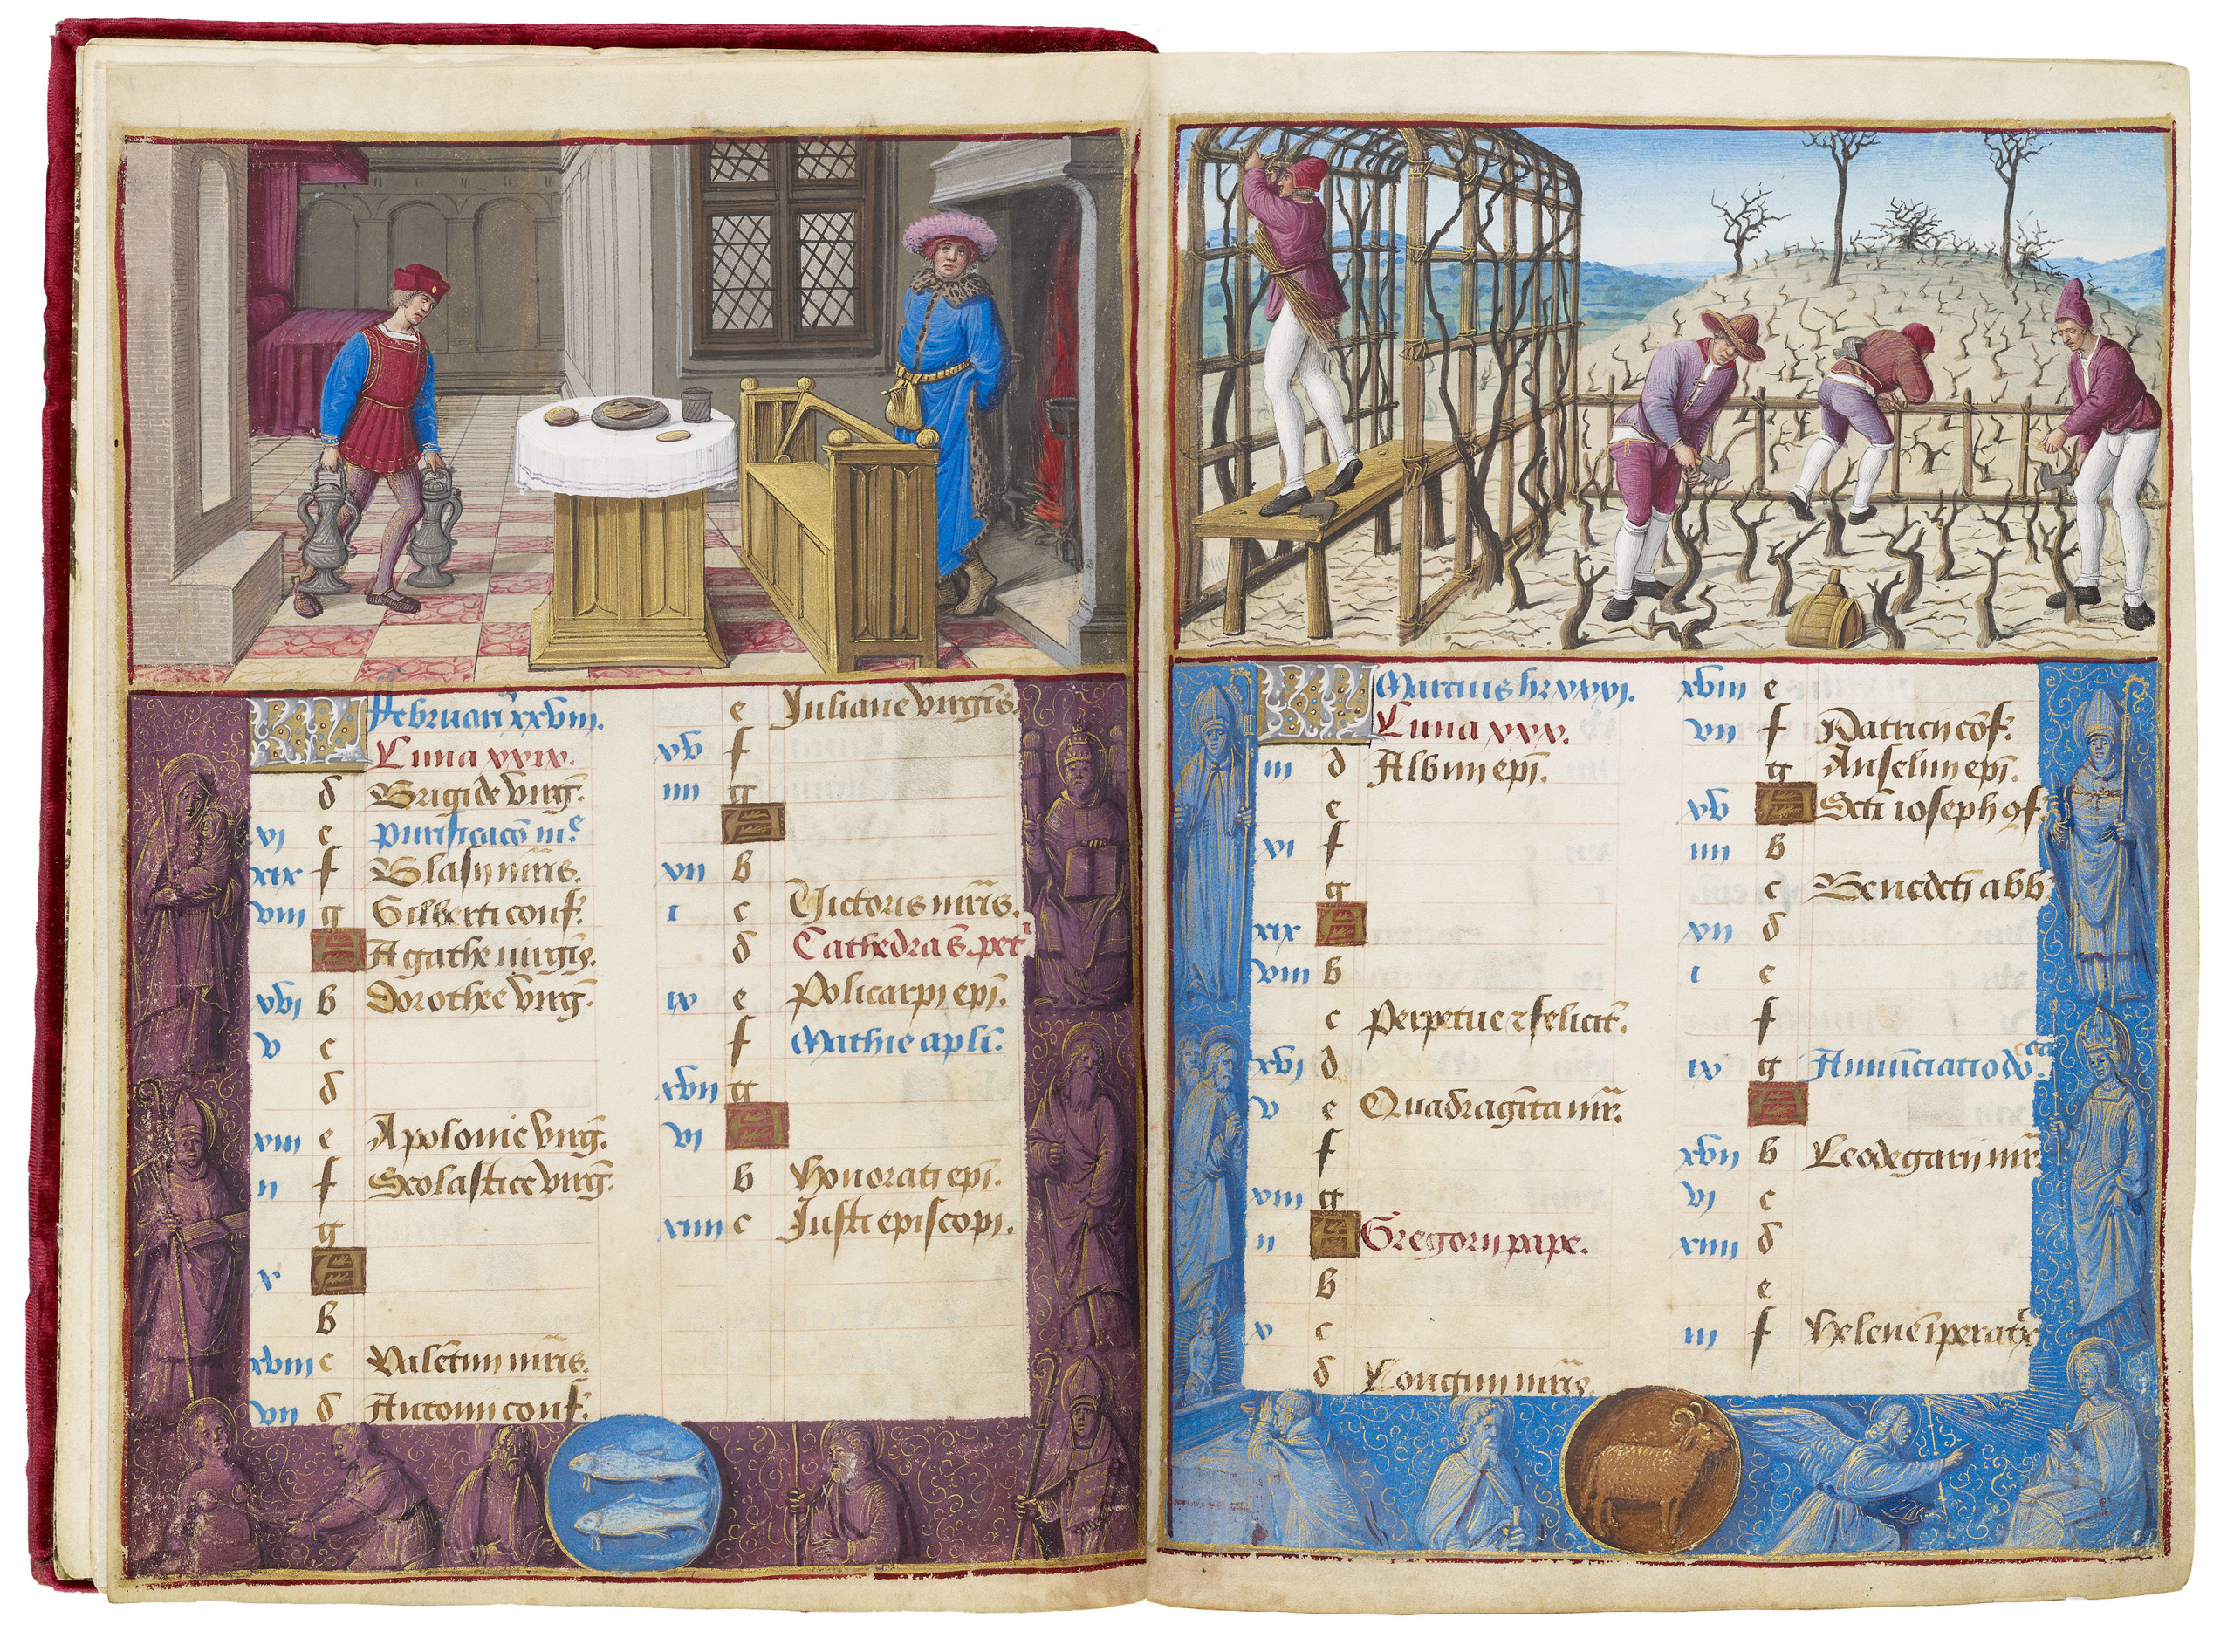 KL Februari⁹ xxviii.
Luna xxix.
d Brigide virg̃.
vi e purificacõ m.ᵉ
xix f Blasii mr̃is.
viii g Gilberti conf.
A Agathe virgis̃.
xvi b Dorothee virg̃.
v c
d
xiii e Apolonie virg̃.
ii f Scolastice virg̃.
g
x A
b
xviii c Valẽtini mr̃is.
vii d Antonii conf.
e Juliane virgis̃.
xv f
iiii g
A
xii b
i c Victoris mr̃is.
d Cathedra s. pet
ix e Policarpi epĩ.
f Mathie aplĩ.
xvii g
vi A
b Honorati epĩ.
xiiii c Justi episcopi.
KL Marcius hz xxxi.
Luna xxx.
iii d Albini epĩ.
e
xi f
g
xix A
viii b
c Perpetue ⁊ felicit̃.
xvi d
v e Quadragĩta mr̃.
f
xiii g
ii A Gregorii pape.
b
x c
d Longini mr̃is.
xviii e
vii f Patricii cõf.
g Anselmi epĩ.
xv A Scti ioseph ꝯf.
iiii b
c Benedcti abb
xii d
i e
f
ix g Annũciatio
A
xvii b Leodegarii mr̃
vi c
xiiii d
e
iii f Helene ĩperat